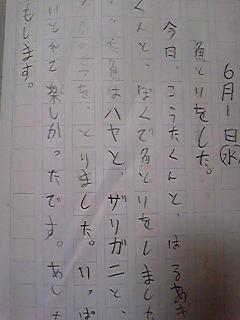 6月1日㊌
魚とりをした。
今日、こうたくんと、はるあき
くんと、ぼくで魚とりをしました
った魚はハヤと、ザリガニと、
を、とりました。いっぱ
いとれて楽しかったです。あした
もします。